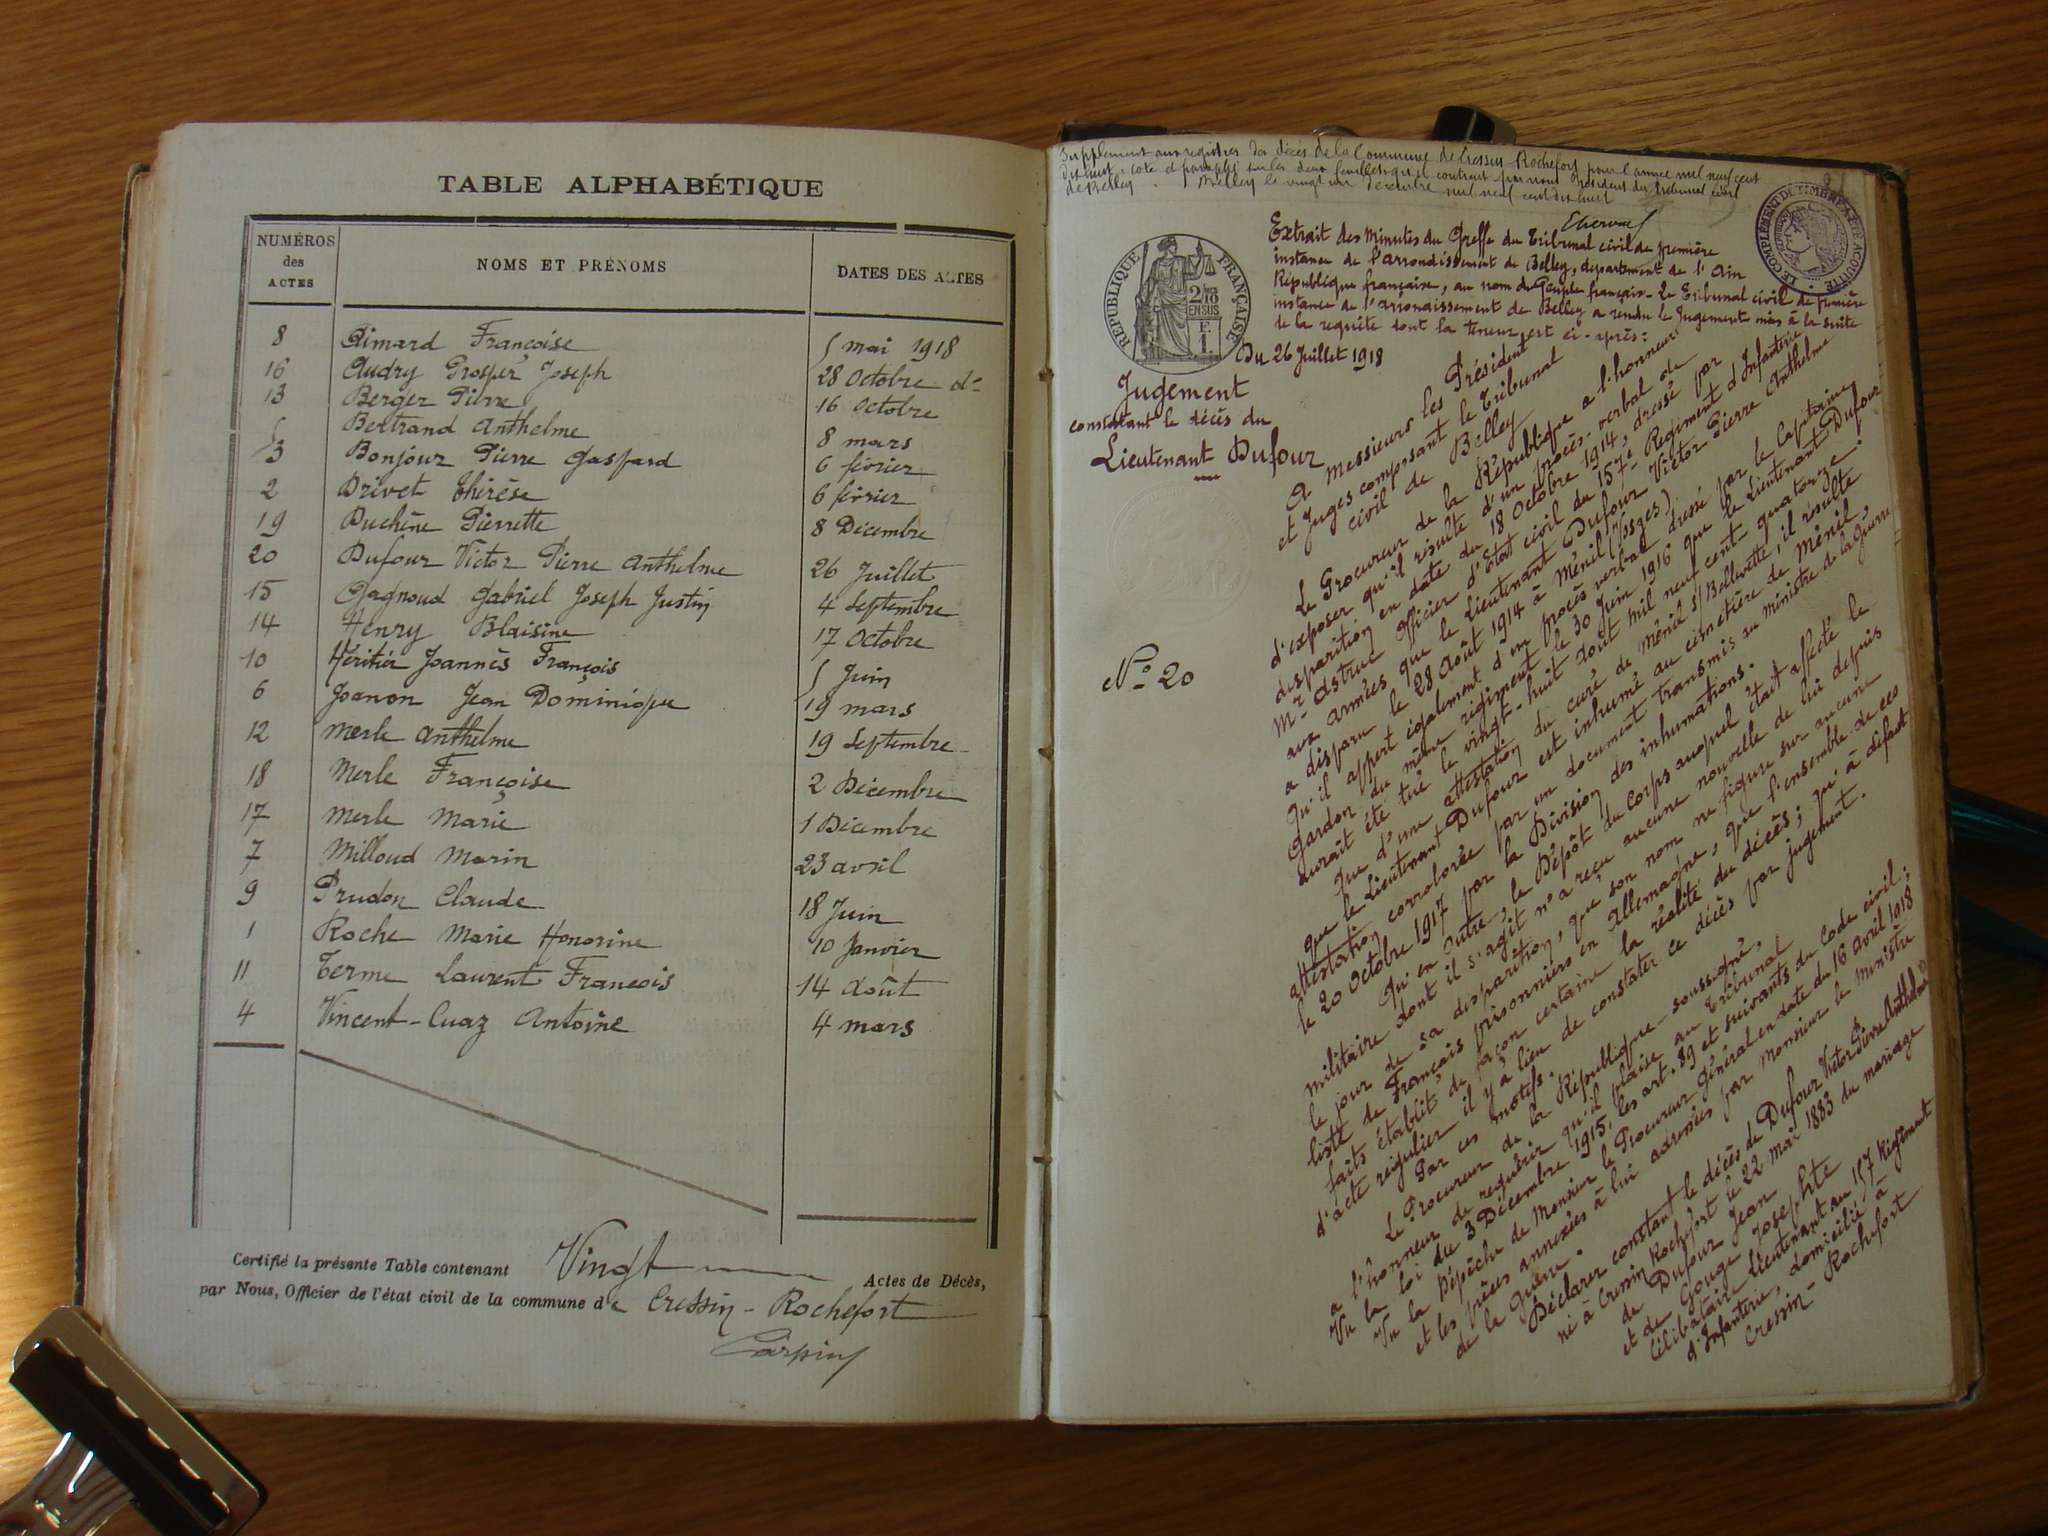 TABLE ALPHABÉTIQUE
NUMÉROS des ACTES
NOMS ET PRÉNOMS
DATES DES ACTES
8 Aimard Françoise 5 mai 1918
16 Audry Prosper Joseph 28 Octobre do
13 Berger Pierre 16 Octobre
5 Bertrand Anthelme 8 mars
3 Bonjour Pierre Gaspard 6 février
2 Brivet Thérèse 6 février
19 Duchêne Pierrette 8 Décembre
20 Dufour Victor Pierre Anthelme 26 Juillet
15 Gagnoud Gabriel Joseph Justin 4 Septembre
14 Henry Blaisine 17 Octobre
10 Héritier Joannès François 5 Juin
6 Joanon Jean Dominique 19 mars
12 Merle Anthelme 19 Septembre
18 Merle Françoise 2 Décembre
17 Merle Marie 1 Décembre
7 Milloud Marin 23 avril
9 Prudon Claude 18 Juin
1 Roche Marie Honorine 10 Janvier
11 Terme Laurent François 14 Août
4 Vincent-Cuaz Antoine 4 mars
Certifié la présente Table contenant Vingt Actes de Décès,
par Nous, Officier de l'état civil de la commune de Cressin-Rochefort
Supplément aux registres des décès de la Commune de Cressin Rochefort pour l'année mil neuf cent
dix huit, coté et paraphé sur les deux feuillets qu'il contient par nous Président du Tribunal civil
de Belley. Belley le vingt un Décembre mil neuf cent dix huit
LE COMPLÉMENT DU TIMBRE A ÉTÉ ACQUITTÉ
RÉPUBLIQUE FRANÇAISE
2/10 EN SUS
1 F.
Extrait des Minutes du Greffe du Tribunal civil de première
instance de l'arrondissement de Belley, département de l'Ain
République française, au nom du Peuple français - Le Tribunal civil de première
instance de l'arrondissement de Belley a rendu le Jugement mis à la suite
de la requête dont la teneur est ci-après:
Du 26 Juillet 1918
Jugement
constatant le décès du
Lieutenant Dufour
No 20
A Messieurs les Président
et Juges composant le Tribunal
civil de Belley
Le Procureur de la République a l'honneur
d'exposer qu'il résulte d'un procès-verbal de
disparition en date du 18 Octobre 1914, dressé par
Mr Astruc Officier d'Etat civil du 157e Régiment d'Infanterie
aux armées que le Lieutenant Dufour Victor Pierre Anthelme
a disparu le 28 Août 1914 à Ménil (Vosges)
Qu'il appert également d'un procès verbal dressé par le Capitaine
Gardon du même régiment le 30 Juin 1916 que le Lieutenant Dufour
aurait été tué le vingt-huit Août mil neuf cent quatorze.
Que d'une attestation du curé de Ménil s/ Belvette, il résulte
que le Lieutenant Dufour est inhumé au cimetière de Ménil,
attestation corroborée par un document transmis au ministre de la Guerre
le 20 Octobre 1917 par la Division des inhumations.
Qu'en outre, le Dépôt du Corps auquel était affecté le
militaire dont il s'agit n'a reçu aucune nouvelle de lui depuis
le jour de sa disparition, que son nom ne figure sur aucune
liste de Français prisonniers en Allemagne, que l'ensemble de ces
faits établit de façon certaine la réalité du décès; qu'à défaut
d'acte régulier il y a lieu de constater ce décès par jugement.
Par ces motifs.
Le Procureur de la République soussigné,
a l'honneur de requérir qu'il plaise au Tribunal
Vu la loi du 3 Décembre 1915, les art. 89 et suivants du Code civil;
Vu la Dépêche de Monsieur le Procureur Général en date du 16 avril 1918
et les pièces annexées à lui adressées par Monsieur le Ministre
de la Guerre.
Déclarer constant le décès de Dufour Victor Pierre Anthelme
né à Cressin Rochefort le 22 Mai 1883 du mariage
de Dufour Jean
et de Gouge Josephte
Célibataire Lieutenant au 157 Régiment
d'Infanterie, domicilié à
Cressin-Rochefort